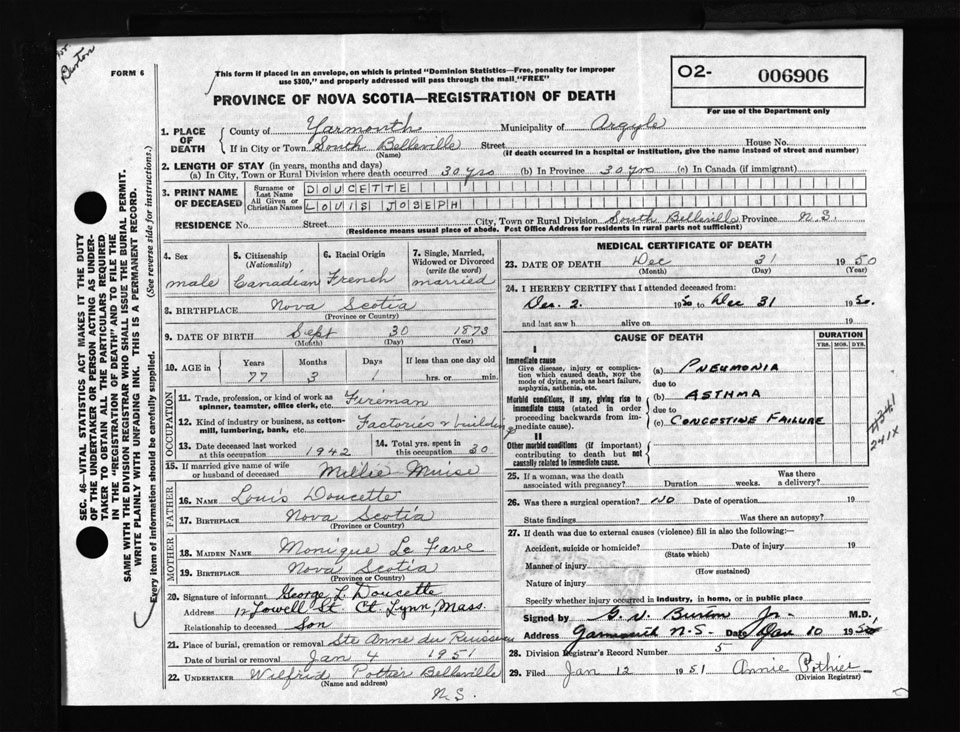 Burton
FORM 6
This form if placed in an envelope, on which is printed "Dominion Statistics—Free, penalty for improper
use $300," and properly addressed will pass through the mail "FREE"
O2- 006906
For use of the Department only
PROVINCE OF NOVA SCOTIA—REGISTRATION OF DEATH
1. PLACE OF DEATH
County of Yarmouth Municipality of Argyle
If in City or Town South Belleville Street House No.
(Name) (If death occurred in a hospital or institution, give the name instead of street and number)
2. LENGTH OF STAY (in years, months and days)
(a) In City, Town or Rural Division where death occurred 30 yrs (b) In Province 30 yrs (c) In Canada (if immigrant)
3. PRINT NAME OF DECEASED
Surname or Last Name DOUCETTE
All Given or Christian Names LOUIS JOSEPH
RESIDENCE No. Street City, Town or Rural Division South Belleville Province N.S.
(Residence means usual place of abode. Post Office Address for residents in rural parts not sufficient)
4. Sex 5. Citizenship (Nationality) 6. Racial Origin 7. Single, Married, Widowed or Divorced (write the word)
male Canadian French married
8. BIRTHPLACE Nova Scotia
(Province or Country)
9. DATE OF BIRTH Sept 30 1873
(Month) (Day) (Year)
10. AGE in Years Months Days If less than one day old
77 3 1 hrs. or min.
OCCUPATION
11. Trade, profession, or kind of work as spinner, teamster, office clerk, etc. Fireman
12. Kind of industry or business, as cotton-mill, lumbering, bank, etc. Factories & building
13. Date deceased last worked at this occupation 1942 14. Total yrs. spent in this occupation 30
15. If married give name of wife or husband of deceased Millie Muise
FATHER
16. NAME Louis Doucette
17. BIRTHPLACE Nova Scotia
(Province or Country)
MOTHER
18. MAIDEN NAME Monique Le Fave
19. BIRTHPLACE Nova Scotia
(Province or Country)
20. Signature of informant George L. Doucette
Address 12 Lowell St. Ct. Lynn, Mass.
Relationship to deceased Son
21. Place of burial, cremation or removal Ste Anne du Ruisseau
Date of burial or removal Jan 4 1951
22. UNDERTAKER Wilfrid Pottier Belleville
(Name and address)
N.S.
MEDICAL CERTIFICATE OF DEATH
23. DATE OF DEATH Dec 31 1950
(Month) (Day) (Year)
24. I HEREBY CERTIFY that I attended deceased from:
Dec. 2. 1950 to Dec 31 1950.
and last saw h alive on 19
CAUSE OF DEATH DURATION
YRS. MOS. DYS.
I
Immediate cause
Give disease, injury or complication which caused death, not the mode of dying, such as heart failure, asphyxia, asthenia, etc.
(a) PNEUMONIA
due to
Morbid conditions, if any, giving rise to immediate cause (stated in order proceeding backwards from immediate cause).
(b) ASTHMA
due to
(c) CONGESTINE FAILURE
II
Other morbid conditions (if important) contributing to death but not causally related to immediate cause.
241X
25. If a woman, was the death associated with pregnancy? Duration weeks. Was there a delivery?
26. Was there a surgical operation? NO Date of operation 19
State findings Was there an autopsy?
27. If death was due to external causes (violence) fill in also the following:—
Accident, suicide or homicide? Date of injury 19
(State which)
Manner of injury
(How sustained)
Nature of injury
Specify whether injury occurred in industry, in home, or in public place
Signed by G. V. Burton Jr. M.D.
Address Yarmouth N.S. Date Jan 10 195
28. Division Registrar's Record Number 5
29. Filed Jan 12 1951 Annie Pothier
(Division Registrar)
SEC. 46—VITAL STATISTICS ACT MAKES IT THE DUTY
OF THE UNDERTAKER OR PERSON ACTING AS UNDER-
TAKER TO OBTAIN ALL THE PARTICULARS REQUIRED
IN THE "REGISTRATION OF DEATH" AND TO FILE THE
SAME WITH THE DIVISION REGISTRAR WHO SHALL ISSUE THE BURIAL PERMIT.
WRITE PLAINLY WITH UNFADING INK. THIS IS A PERMANENT RECORD.
Every item of information should be carefully supplied. (See reverse side for instructions.)